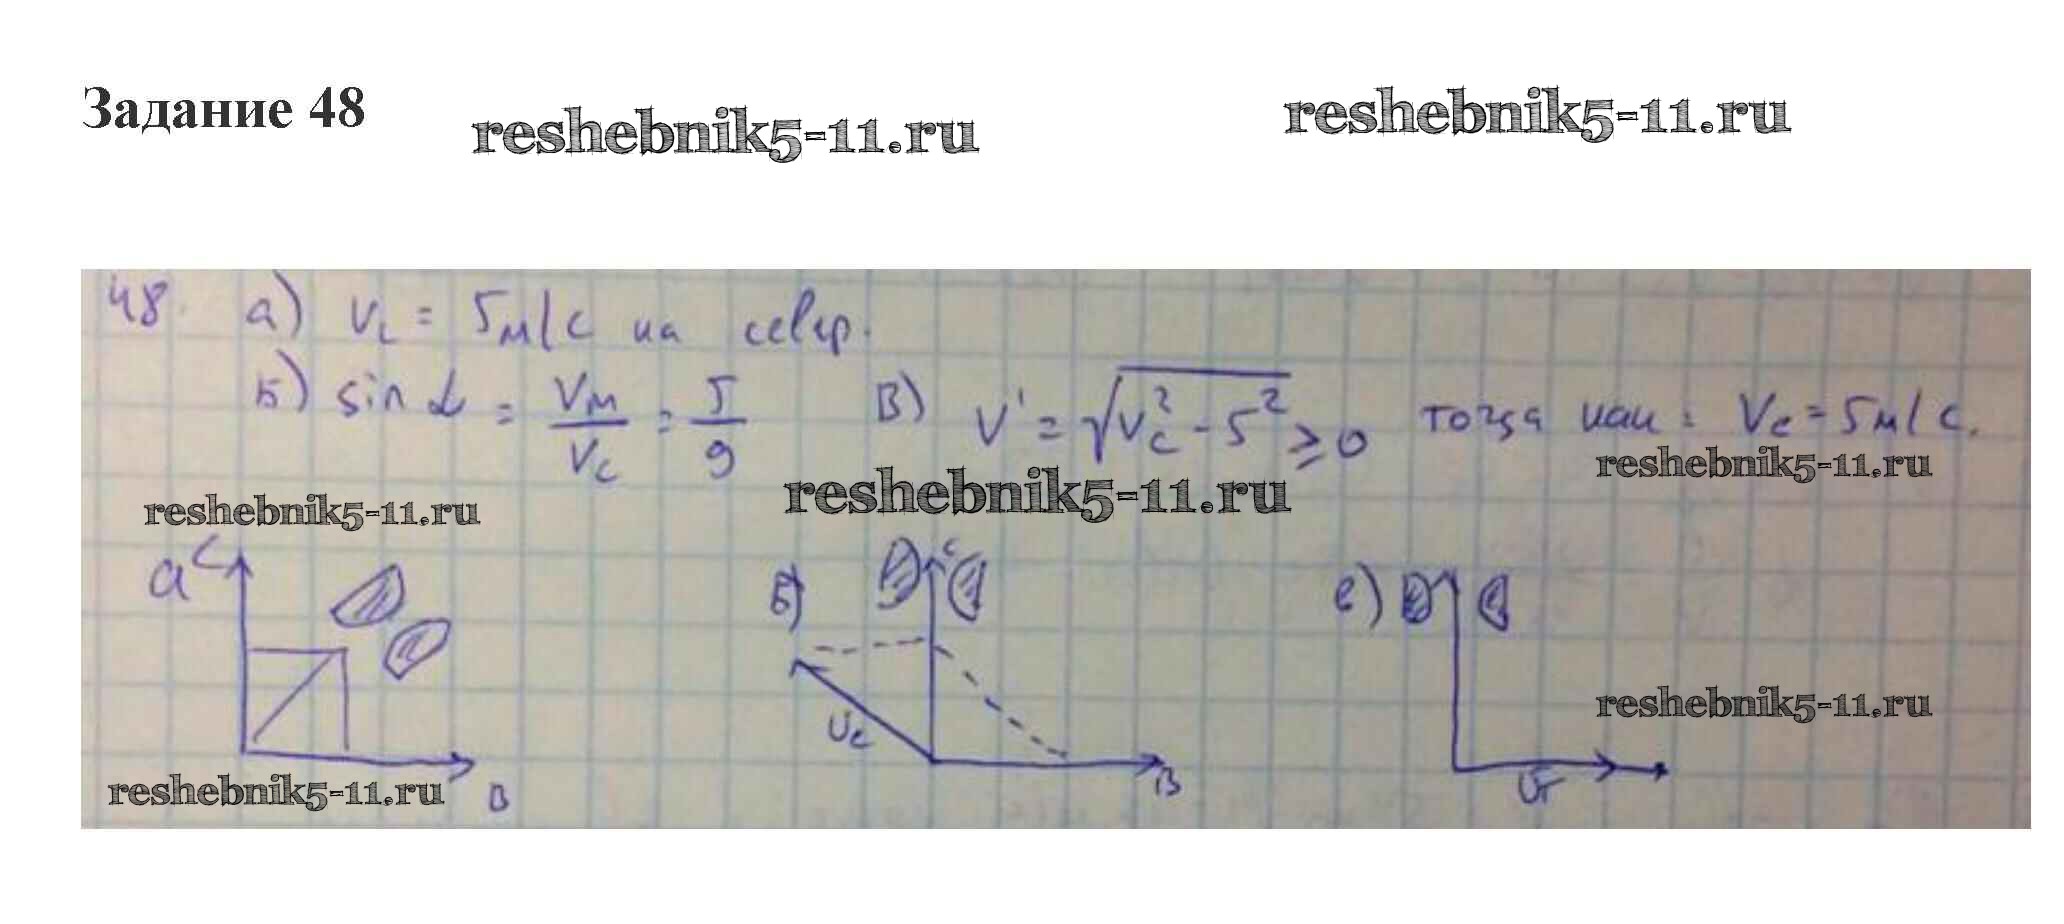 Задание 48
reshebnik5-11.ru
reshebnik5-11.ru
48. а) Vс = 5м/с на север.
Б) sin α = Vм/Vс = 5/9 В) V' = √(Vс² - 5²) ≥ 0 тогда Vс = 5м/с.
reshebnik5-11.ru
reshebnik5-11.ru
reshebnik5-11.ru
а С Б) С в)
Vс
reshebnik5-11.ru
reshebnik5-11.ru В В